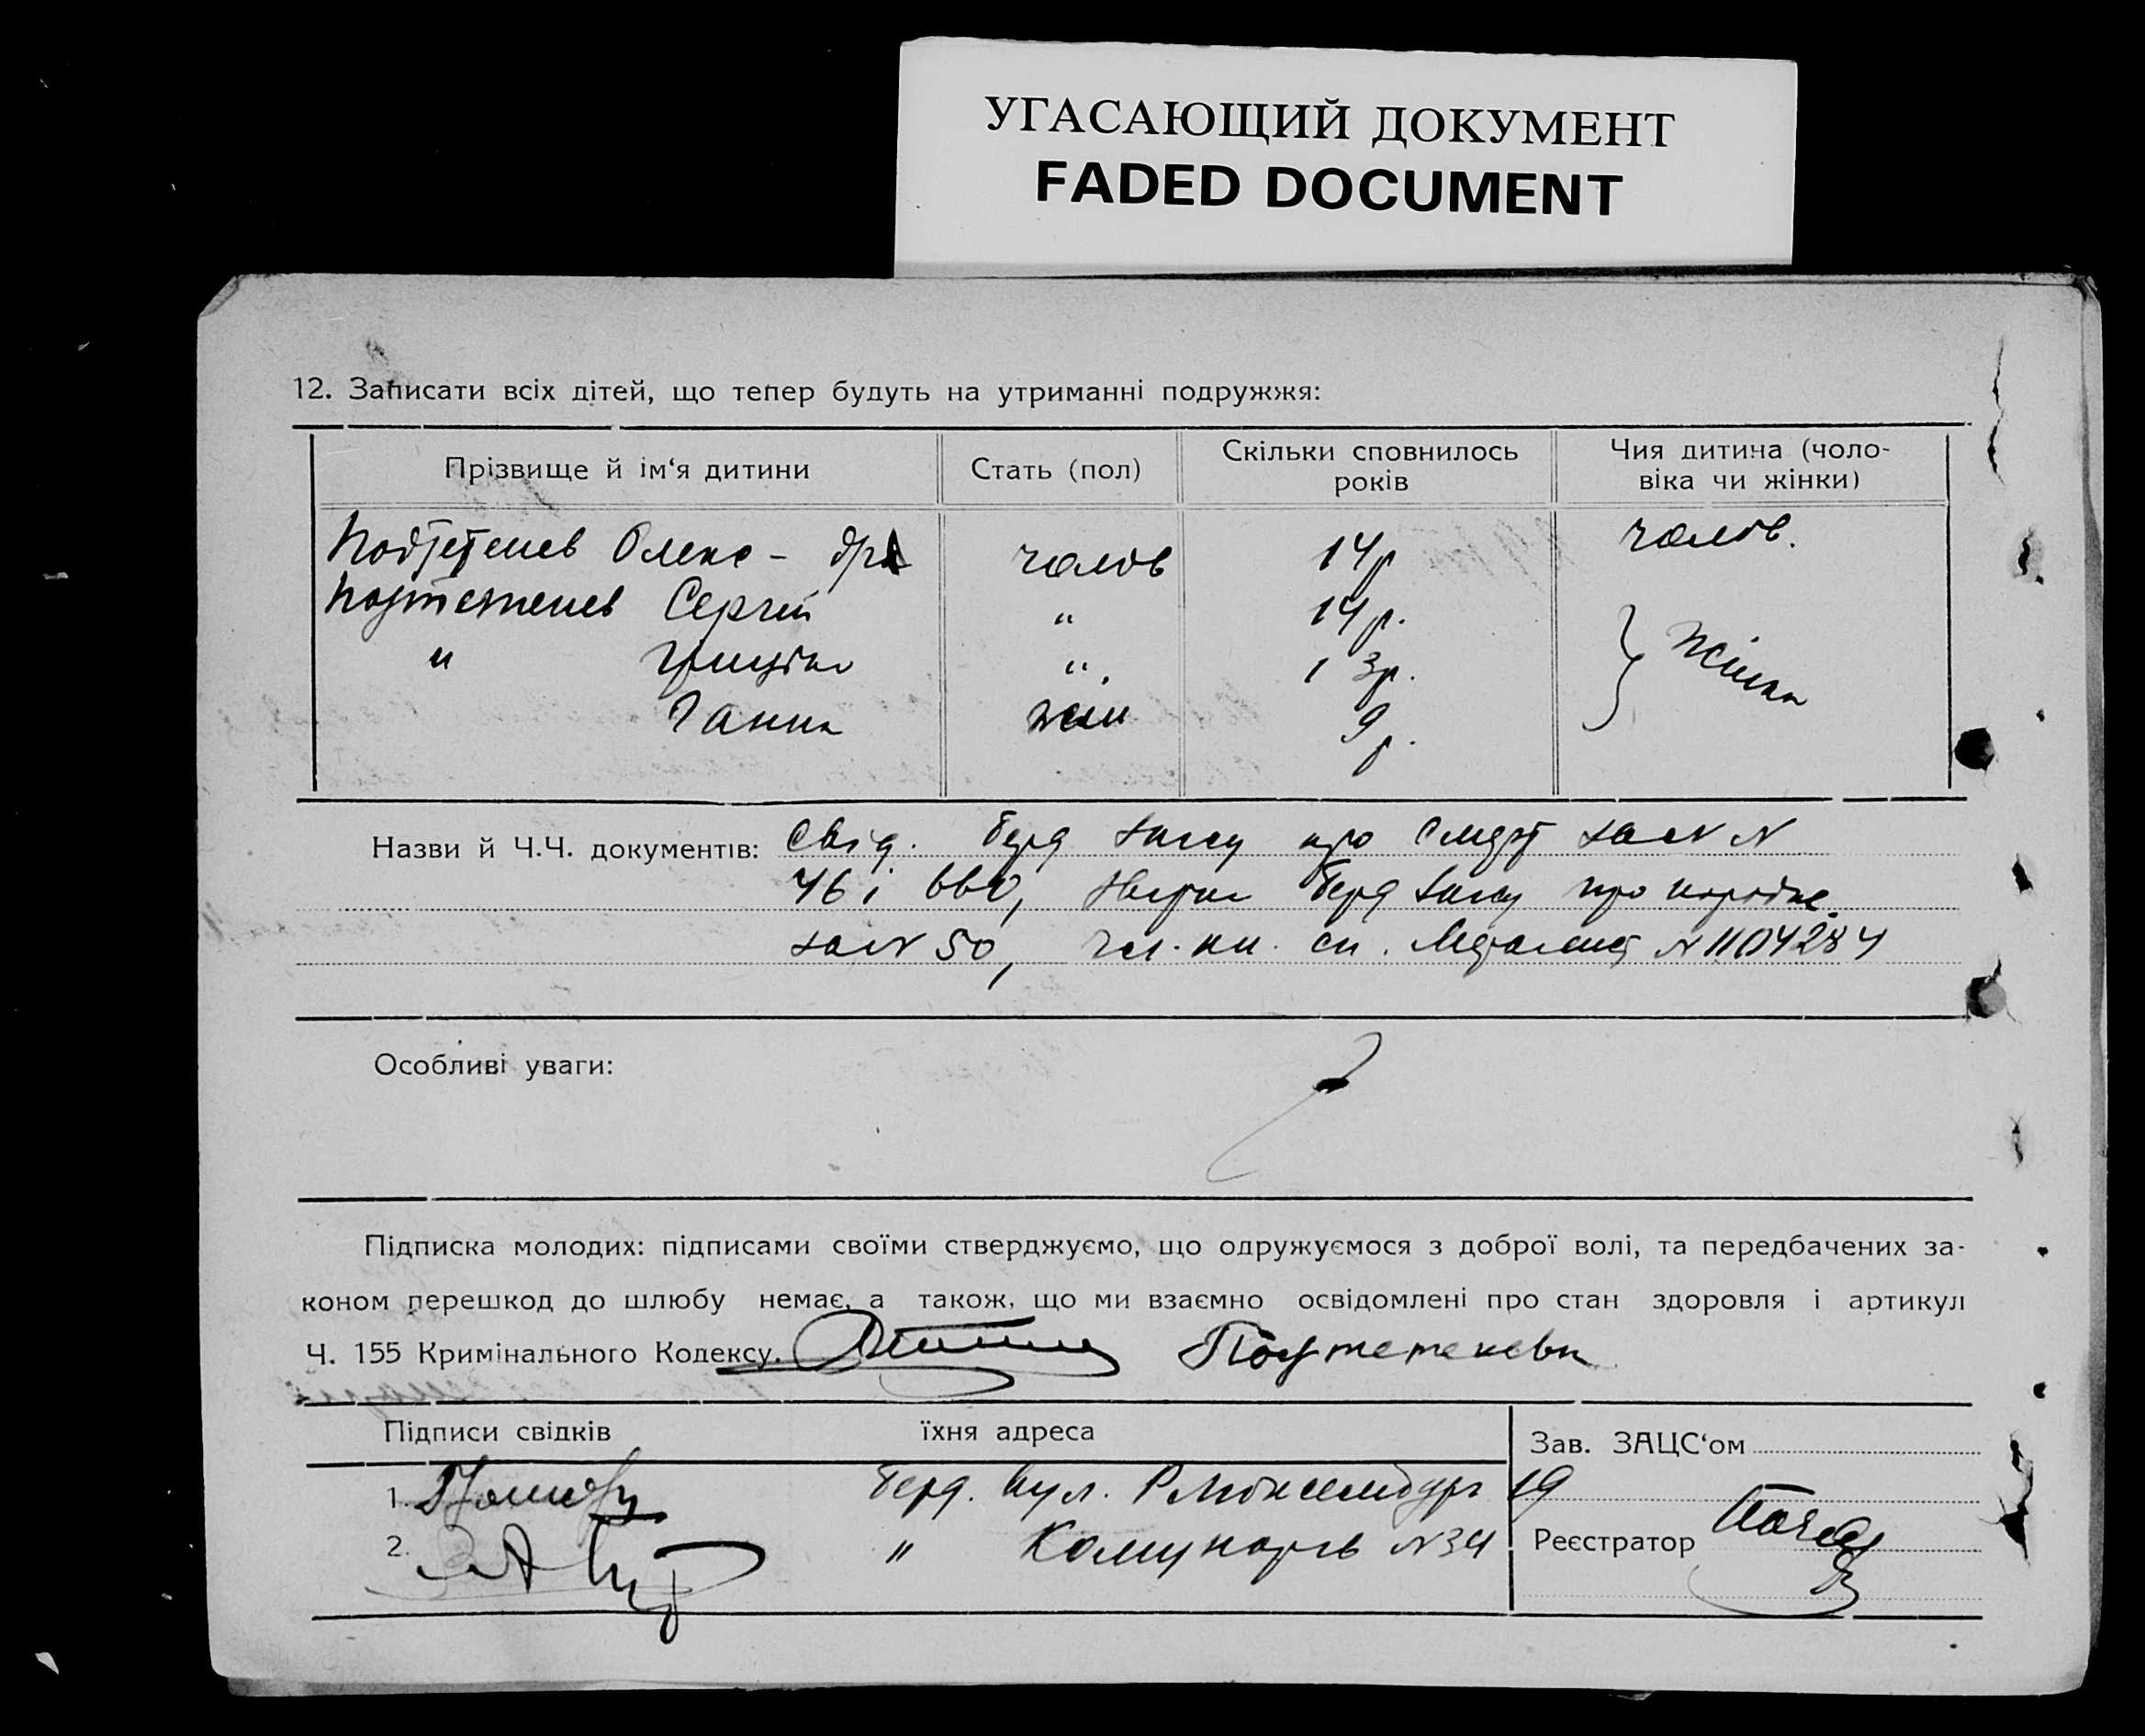 УГАСАЮЩИЙ ДОКУМЕНТ
FADED DOCUMENT
12. Записати всіх дітей, що тепер будуть на утриманні подружжя:
Прізвище й ім‘я дитини
Стать (пол)
Скільки сповнилось
років
Чия дитина (чоло-
віка чи жінки)
Олекс- др чолов 14р чолов.
Сергій " 14р.
" Грицько ". 13р. Жінки
Ганна жін 9р.
Назви й Ч.Ч. документів: Свід. Берд Загсу про смерт N
46 і 660, Берд Загсу про
N 50, чл. кн. сп. Металист N 1104284
Особливі уваги:
Підписка молодих: підписами своїми стверджуємо, що одружуємося з доброї волі, та передбачених за-
коном перешкод до шлюбу немає, а також, що ми взаємно освідомлені про стан здоровля і артикул
Ч. 155 Кримінального Кодексу.
Підписи свідків
їхня адреса
Зав. ЗАЦС‘ом
1. Берд. вул. Р. Люксембург 19
2. " Комунарів N34
Реєстратор